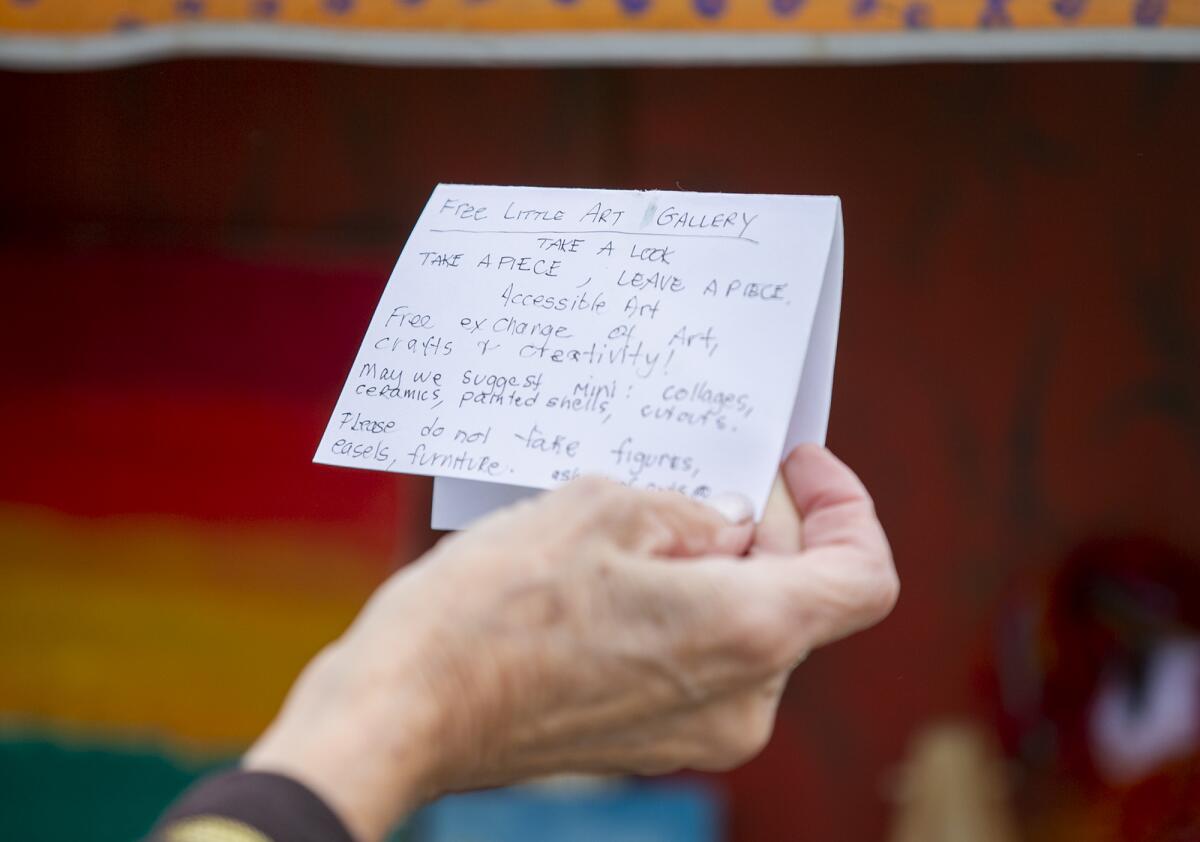 Free LITTLE ART GALLERY
TAKE A LOOK
TAKE A PIECE, LEAVE A PIECE.
Accessible Art
Free exchange of Art,
crafts & creativity!
May we suggest mini: collages,
ceramics, painted shells, cutouts.
Please do not take figures,
easels, furniture.